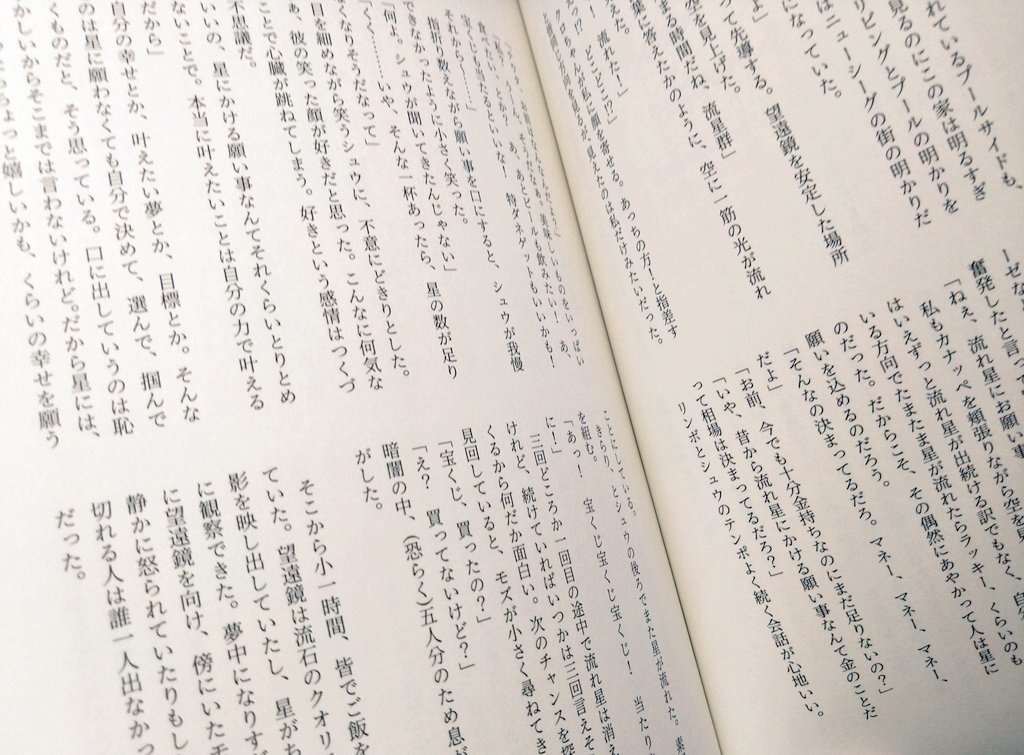 れているプールサイドも、
見るのにこの家は明るすぎ
リビングとプールの明かりを
はニューシーグの街の明かりだ
になっていた。
よ」
って先導する。望遠鏡を安定した場所
空を見上げた。
まる時間だね、流星群」
葉に答えたかのように、空に一筋の光が流れ
た。
流れた!」
どこどこ!?」
が私に顔を寄せる。あっちの方!と指差す
見えたのは私だけみたいだった。
奮発したと言って
「ねぇ、流れ星にお願い事
私もカナッペを頬張りながら空を
はいえずっと流れ星が出続ける訳でもなく、自
いる方向でたまたま星が流れたらラッキー、くらいのも
のだった。だからこそ、その偶然にあやかって人は星に
願いを込めるのだろう。
「そんなの決まってるだろ。マネー、マネー、マネー、
だよ」
「お前、今でも十分金持ちなのにまだ足りないの?」
「いや、昔から流れ星にかける願い事なんて金のことだ
って相場は決まってるだろ?」
リンボとシュウのテンポよく続く会話が心地いい。
美味しいものをいっぱい
食べたい!とかもいいな!
あ、あとビールも飲みたい!あ、
宝くじも当たるといいな!特ダネゲットもいいかも!
それから⋯⋯」
指折り数えながら願い事を口にすると、シュウが我慢
できなかったように小さく笑った。
「何よ。シュウが聞いてきたんじゃない」
「くく⋯⋯。いや、そんな一杯あったら、星の数が足り
なくなりそうだなって」
目を細めながら笑うシュウに、不意にどきりとした。
あ、彼の笑った顔が好きだと思った。こんなに何気な
ことで心臓が跳ねてしまう。好きという感情はつくづ
不思議だ。
いいの、星にかける願い事なんてそれくらいとりとめ
ないことで。本当に叶えたいことは自分の力で叶える
だから」
自分の幸せとか、叶えたい夢とか、目標とか。そんな
のは星に願わなくても自分で決めて、選んで、掴んで
くものだと、そう思っている。口に出していうのは恥
かしいからそこまでは言わないけれど。だから星には、
ちょっと嬉しいかも、くらいの幸せを願う
ことにしている。
きらり、とシュウの後ろでまた星が流れた。
を組む。
「あっ!宝くじ宝くじ宝くじ!当たり
に!」
三回どころか一回目の途中で流れ星は消え
けれど、続けていればいつかは三回言えそ
くるから何だか面白い。次のチャンスを探
見回していると、モズが小さく尋ねてき
「宝くじ、買ったの?」
「え?買ってないけど?」
暗闇の中、(恐らく)五人分のため息が
がした。
そこから小一時間、皆でご飯を
ていた。望遠鏡は流石のクオリ
影を映し出していたし、星がち
に観察できた。夢中になりす
に望遠鏡を向け、傍にいたモ
静かに怒られていたりもし
切れる人は誰一人出なかっ
だった。